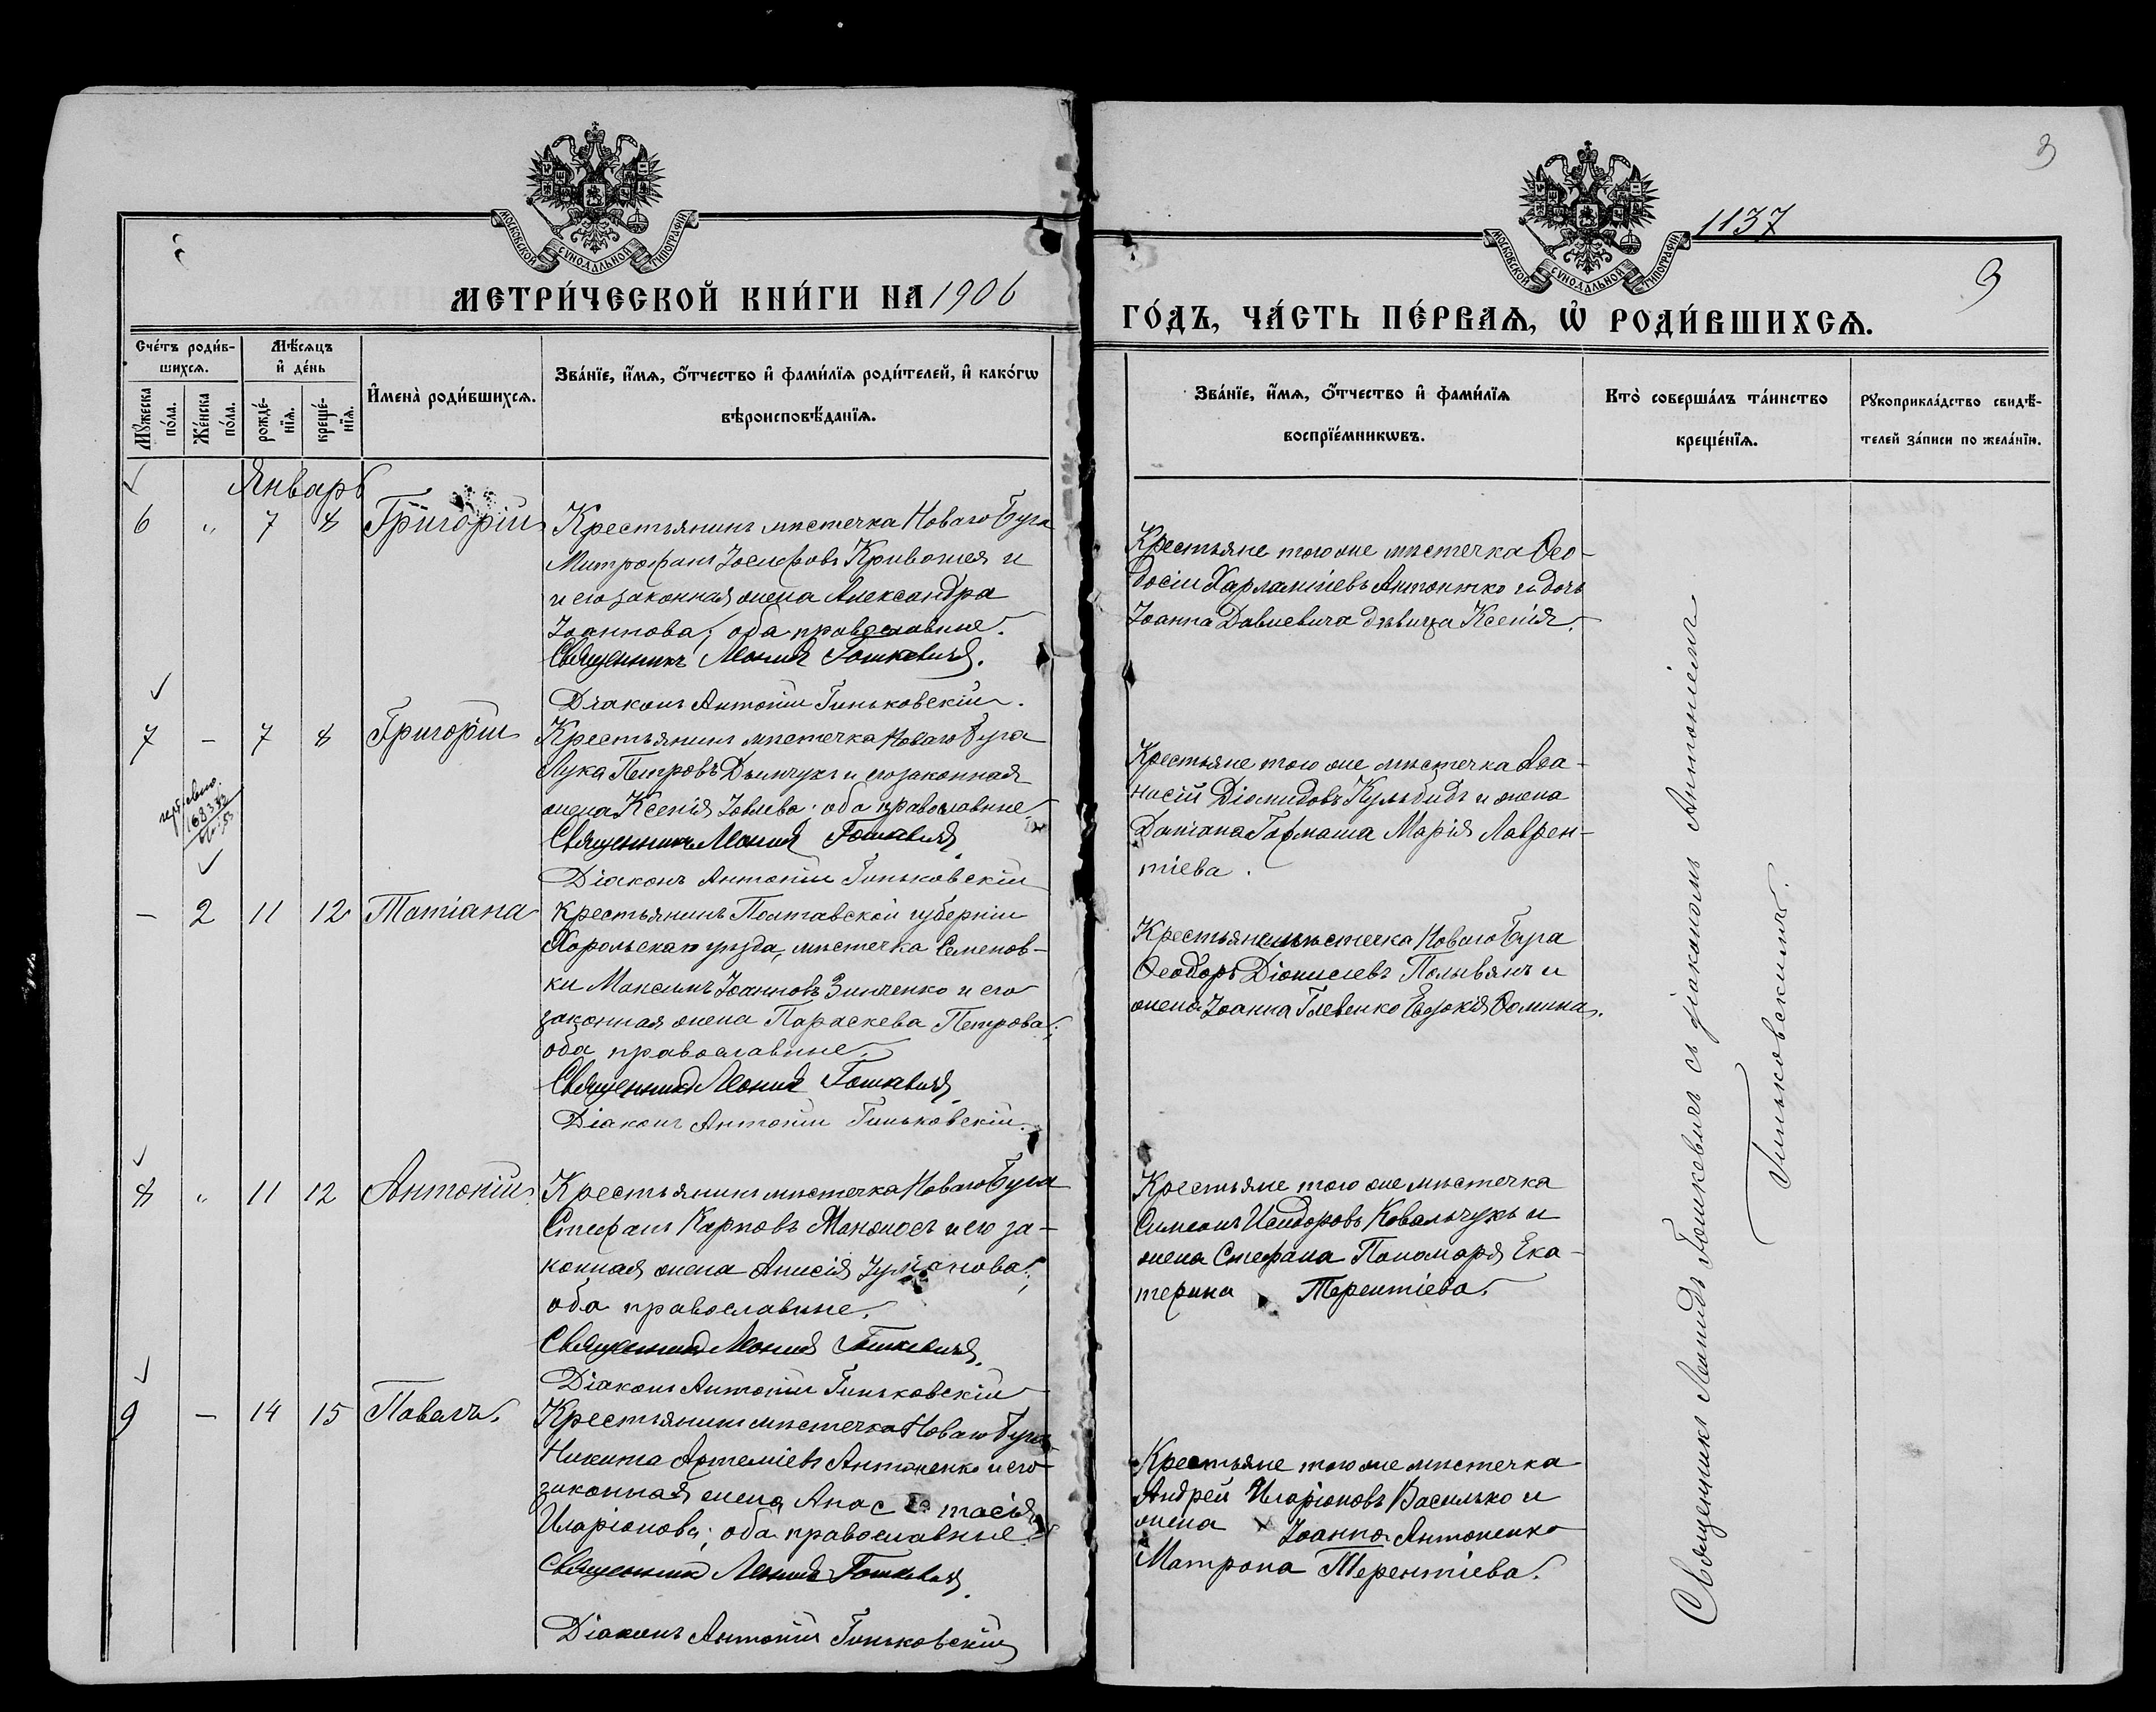 МОСКОВСКОЙ СѴНОДАЛЬНОЙ ТИПОГРАФІИ
МЕТРИ́ЧЕСКОЙ КНИ́ГИ НА 1906
Сче́тъ роди́в-
шихся.
Мꙋ́жеска по́ла.
Же́нска по́ла.
Мѣ́сяцъ
и҆ де́нь
рожде́-
нїя.
креще́-
нїя.
И҆мена̀ роди́вшихся.
Зва́нїе, и҆́мя, ѻ҆́тчество и҆ фами́лїя роди́телей, и҆ како́гѡ
вѣроисповѣ́данїя.
Январь
6 „ 7 8 Григорій
Крестьянинъ мѣстечка Новаго Буга
Митрофанъ Іосифовъ Кривошея и
и его законная жена Александра
Іоаннова; оба православные.
Священникъ Леонидъ Гошкевичъ.
Діаконъ Антоній Гиньковскій.
7 – 7 8 Григорій
Крестьянинъ мѣстечка Новаго Буга
Лука Петровъ Дымчукъ и его законная
жена Ксенія Іовлева; оба православные.
Священникъ Леонидъ Гошкевичъ.
Діаконъ Антоній Гиньковскій
– 2 11 12 Татіана
Крестьянинъ Полтавской губерніи
Хорольскаго уѣзда, мѣстечка Семенов-
ки Максимъ Іоанновъ Зинченко и его
законная жена Параскева Петрова;
оба православные.
Священникъ Леонидъ Гошкевичъ.
Діаконъ Антоній Гиньковскій.
8 „ 11 12 Антоній
Крестьянинъ мѣстечка Новаго Буга
Стефанъ Карповъ Мокомосъ и его за-
конная жена Анисія
оба православные.
Священникъ Леонидъ Гошкевичъ.
Діаконъ Антоній Гиньковскій
9 – 14 15 Павелъ.
Крестьянинъ мѣстечка Новаго Буга
Никита Артеміевъ Антоненко и его
законная жена Анастасія
Иларіонова; оба православные.
Священникъ Леонидъ Гошкевичъ.
Діаконъ Антоній Гиньковскій
3
1137
9
МОСКОВСКОЙ СѴНОДАЛЬНОЙ ТИПОГРАФІИ
ГО́ДЪ, ЧА́СТЬ ПЕ́РВАЯ, Ѡ҆ РОДИ́ВШИХСЯ.
Зва́нїе, и҆́мя, ѻ҆́тчество и҆ фами́лїя
воспрїе́мникѡвъ.
Кто̀ соверша́лъ та́инство
креще́нїя.
Рꙋкоприкла́дство свидѣ́-
телей за́писи по жела́нїю.
Крестьяне того же мѣстечка Ѳео-
досій Харлампіевъ Антонтко и дочь
Іоанна Давиевича дѣвица Ксенія.
Крестьяне того же мѣстечка Аѳа-
насій Діомидовъ Кульбидъ и жена
Даміана Гармаша Марія Лаврен-
тіева.
Крестьяне мѣстечка Новаго Буга
Ѳеодоръ Діонисіевъ Полывянъ и
жена Іоанна Глевенко Евдокія Ѳомина.
Крестьяне того же мѣстечка
Симеонъ Исидоровъ Ковальчукъ и
жена Стефана Пономаря Ека-
терина Терентіева.
Крестьяне того же мѣстечка
Андрей Иларіоновъ Василько и
жена Іоанна Антоненко
Матрона Терентіева.
Священникъ Леонидъ Гошкевичъ съ діакономъ Антоніемъ
Гиньковскимъ.